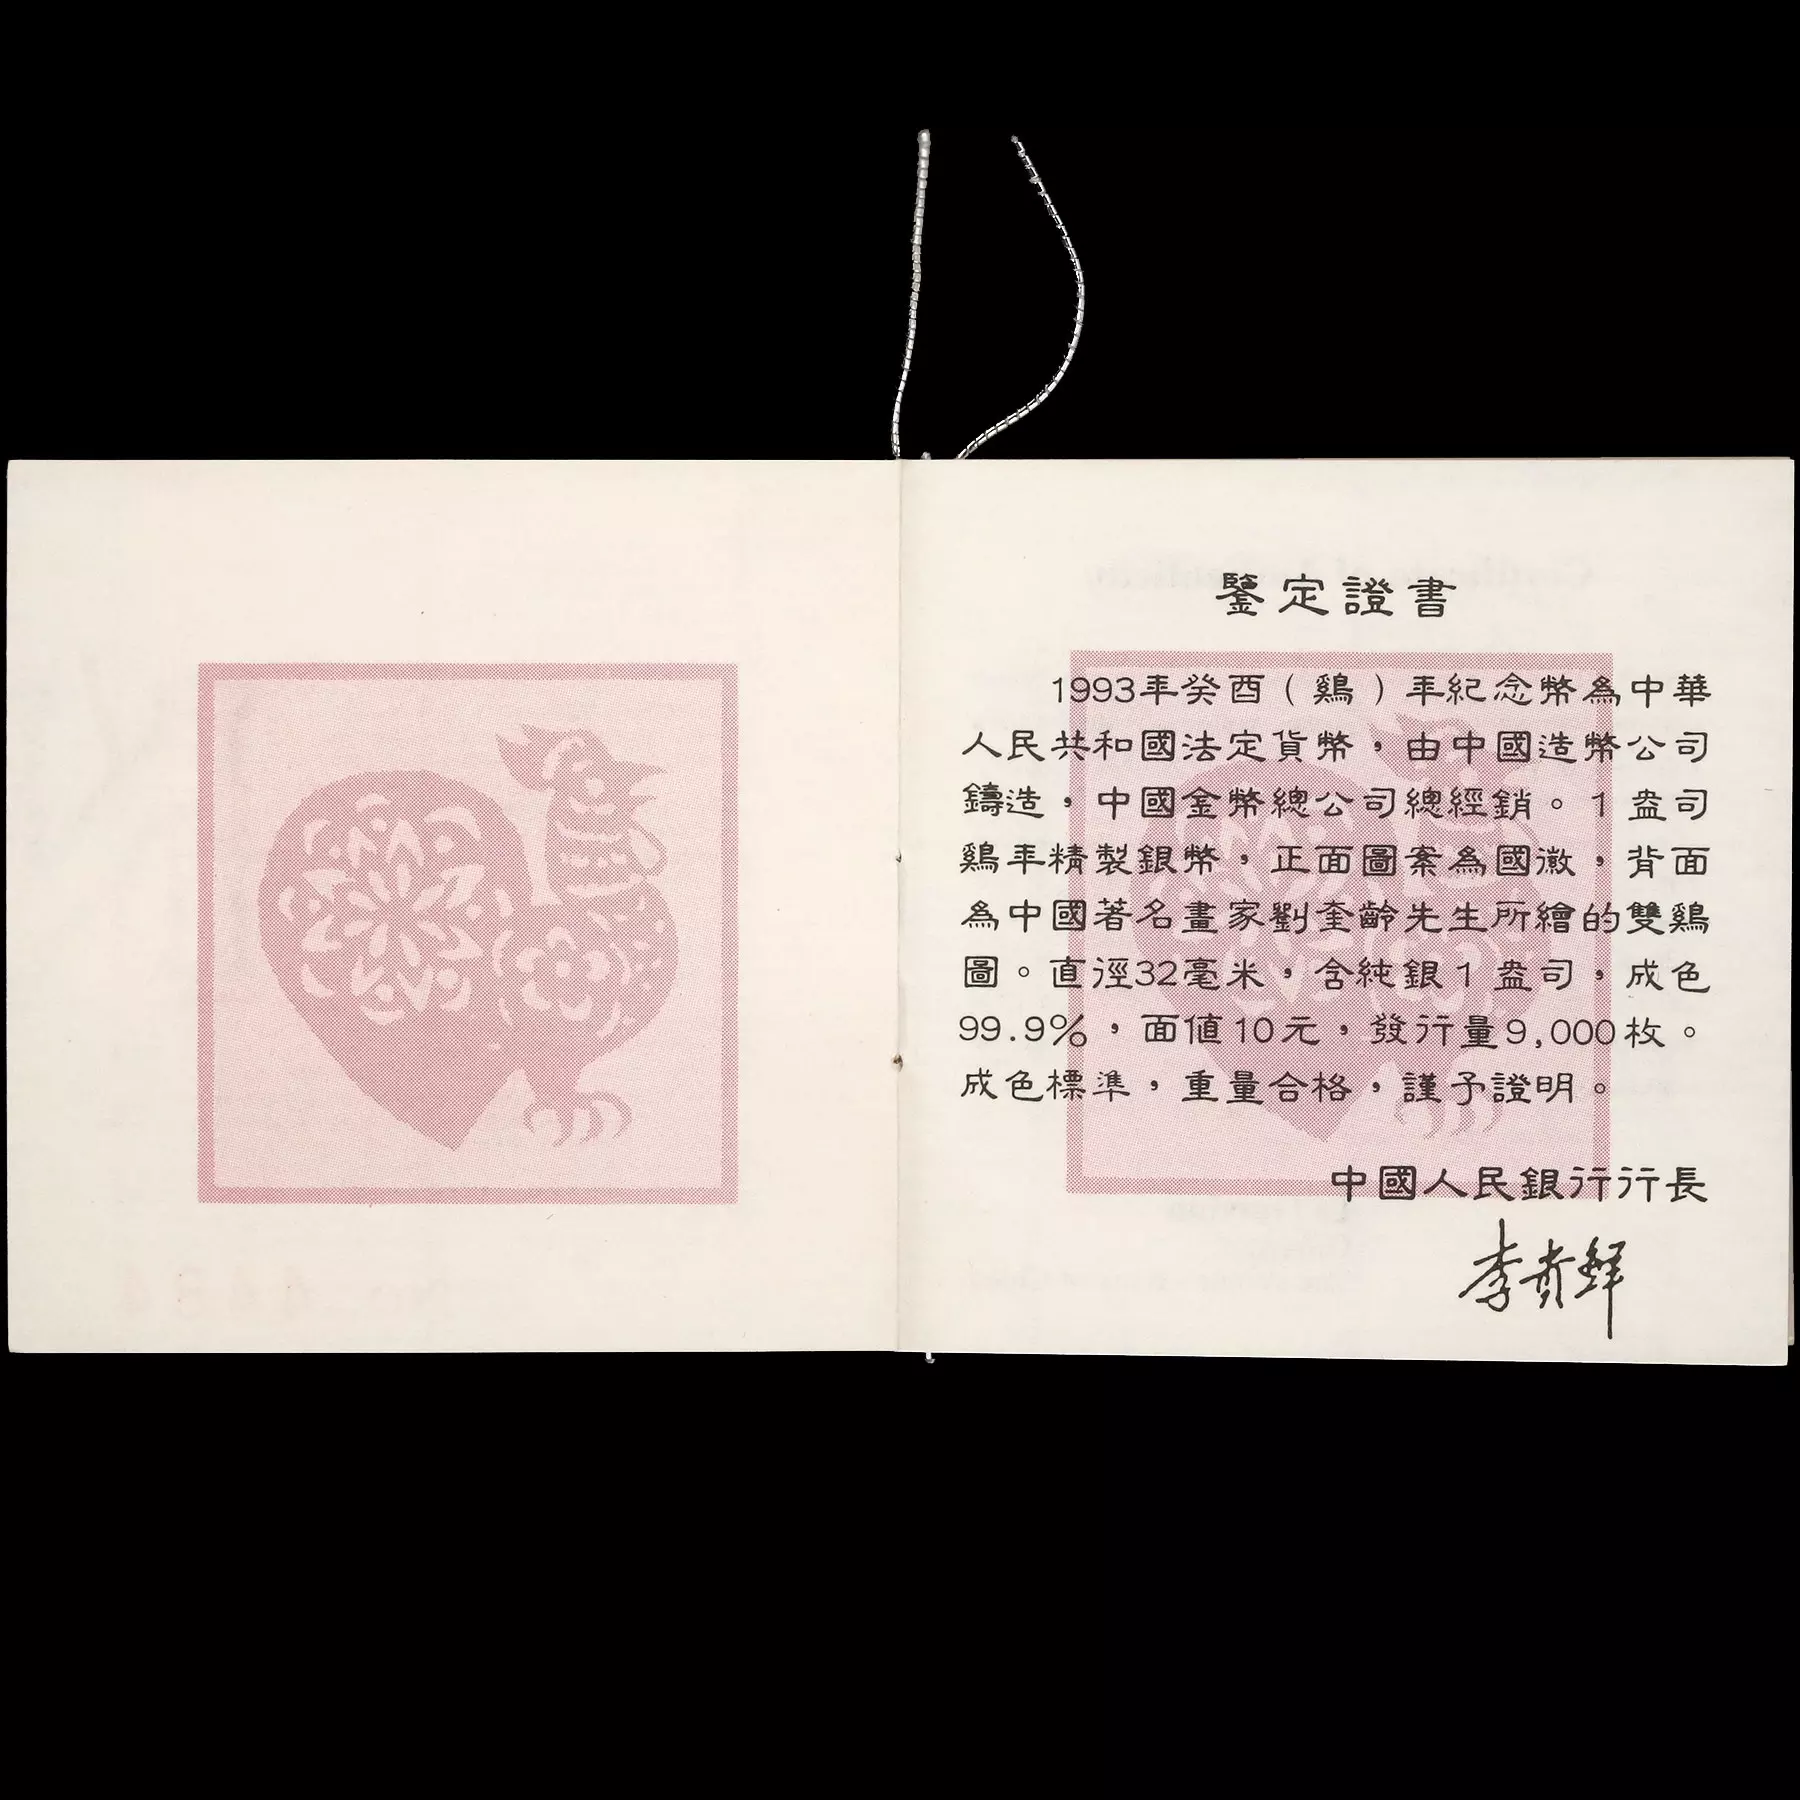 鑒定證書
1993年癸酉（鷄）年紀念幣為中華
人民共和國法定貨幣，由中國造幣公司
鑄造，中國金幣總公司總經銷。1盎司
鷄年精製銀幣，正面圖案為國徽，背面
為中國著名畫家劉奎齡先生所繪的雙鷄
圖。直徑32毫米，含純銀1盎司，成色
99.9%，面値10元，發行量9,000枚。
成色標準，重量合格，謹予證明。
中國人民銀行行長
李贵鲜